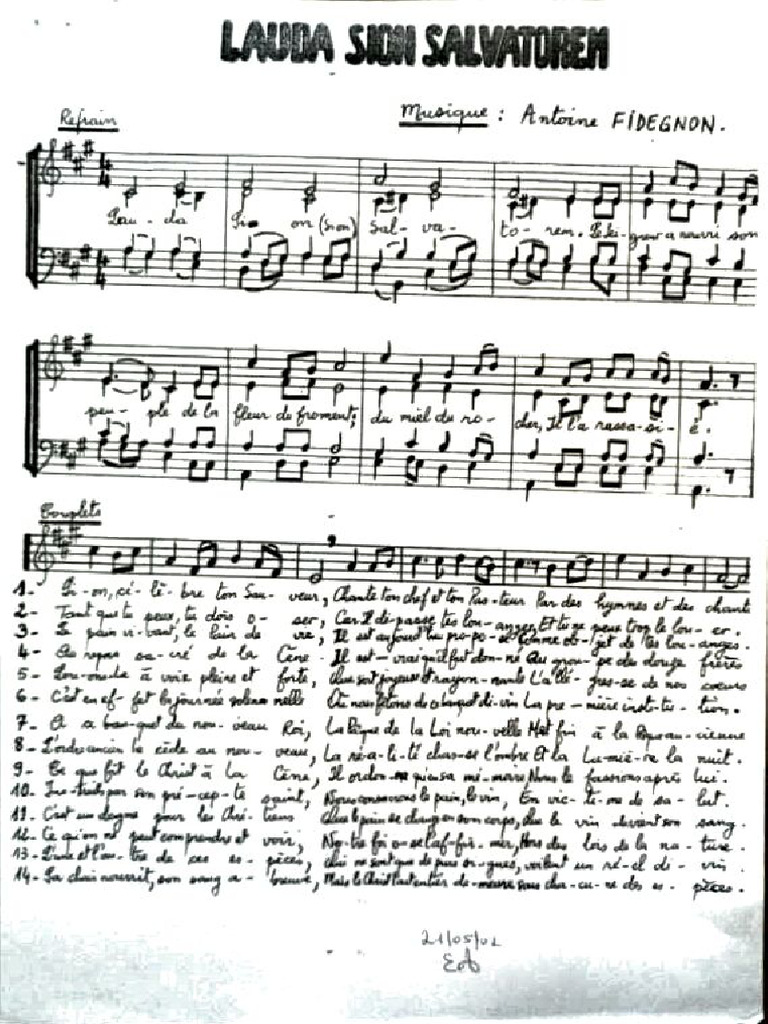 LAUDA SION SALVATOREM
Refrain
Musique : Antoine FIDEGNON.
Lau-da Si- on (Sion) Sal- va- to- rem. Le Sei-gneur a nourri son
peu- ple de la fleur du froment; du miel du ro- cher, Il l'a rassa-si- é.
Couplets
1- Si-on, cé-lè-bre ton Sau- veur, Chante ton chef et ton Pas-teur Par des hymnes et des chants
2- Tant que tu peux, tu dois o- ser, Car Il dépasse tes louanges Et tu ne peux trop le lou- er.
3- Le pain vivant, le pain de vie, Il est aujourd'hui pro-po-sé Comme ob-jet de tes lou-anges.
4- Au repas sa-cré de la Cène Il est - vrai qu'il fut don-né Au grou-pe des douze frères
5- Lou-ons-le à voix pleine et forte, Que soit joyeuse et rayon-nante L'al-lé-gres-se de nos cœurs
6- C'est en ef-fet la journée solennelle Où nous fêtons de ce banquet di-vin La pre-mière insti-tu-tion.
7- A ce ban-quet du nou-veau Roi, La Pâque de la Loi nou-velle Met fin à la Pâque an-cienne
8- L'ordre ancien le cède au nou- veau, La ré-a-li-té chas-se l'ombre Et la Lu-miè-re la nuit.
9- Ce que fit le Christ à la Cène, Il ordon-na qu'en sa mé-moire Nous le fassions après lui.
10- Ins-truits par son pré-cep-te saint, Nous consacrons le pain, le vin, En vic-ti-me de sa- lut.
11- C'est un dogme pour les Chré- tiens Que le pain se change en son corps, Que le vin devient son sang.
12- Ce qu'on ne peut comprendre et voir, No-tre foi o-se l'af-fir-mer, Hors des lois de la na- ture.
13- L'une et l'au-tre de ces es- pèces, Qui ne sont que de purs signes, voilent un ré-el di- vin.
14- Sa chair nourrit, son sang a- breuve, Mais le Christ tout entier de-meure sous cha-cu-ne des es- pèces.
21/05/02